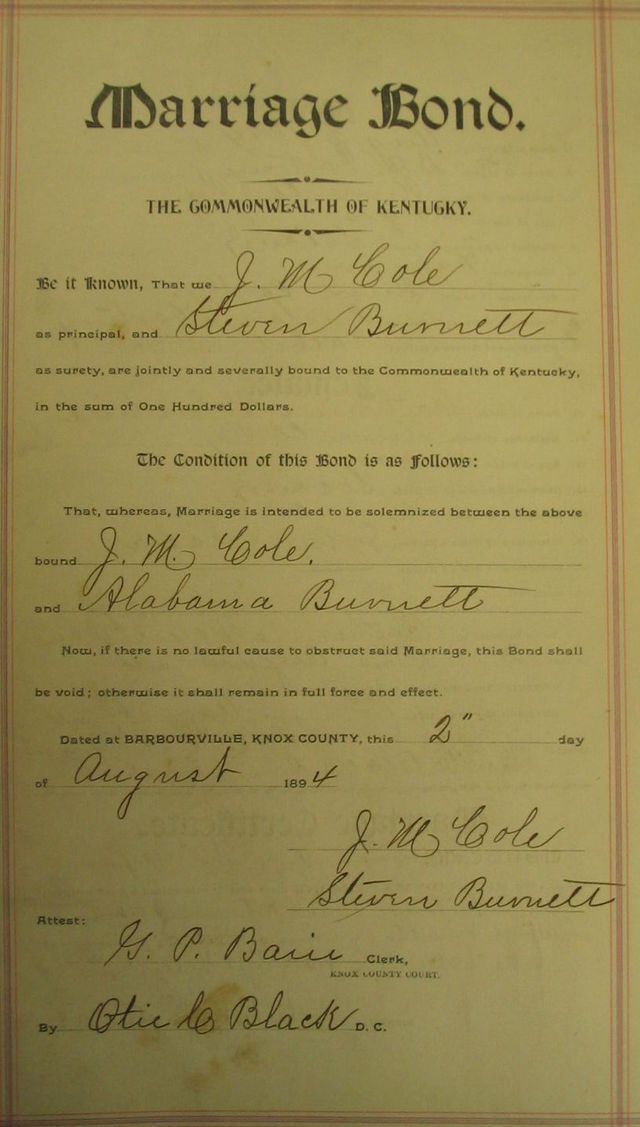 Marriage Bond.
THE COMMONWEALTH OF KENTUCKY.
Be it Known, That we J. M Cole
as principal, and Steven Burnett
as surety, are jointly and severally bound to the Commonwealth of Kentucky,
in the sum of One Hundred Dollars.
The Condition of this Bond is as Follows:
That, whereas, Marriage is intended to be solemnized between the above
bound J. M. Cole.
and Alabama Burnett
Now, if there is no lawful cause to obstruct said Marriage, this Bond shall
be void; otherwise it shall remain in full force and effect.
Dated at BARBOURVILLE, KNOX COUNTY, this 2" day
of August 1894
J. M Cole
Steven Burnett
Attest:
G. P. Bain Clerk,
KNOX COUNTY COURT.
By Otie C Black D. C.